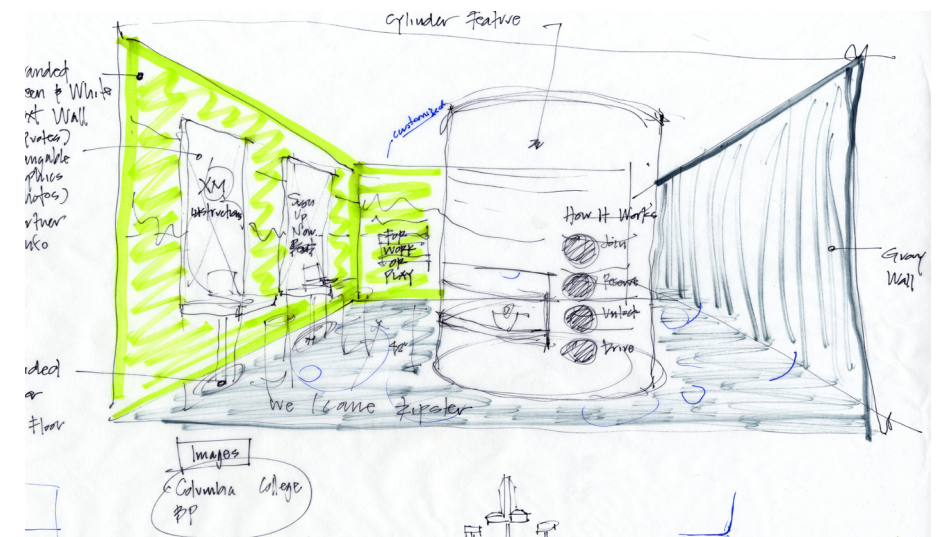 Cylinder Feature
customized
anded
een & White
xt Wall
(votes)
angable
aphics
hotos)
artner
nko
XM
Instructions
Sign
Up
Now
FOR
WORK
OR
PLAY
How It Works
Join
Reserve
Unlock
Drive
Gray
Wall
nded
or
Floor
Welcome Zipster
Images
Columbia College
BP